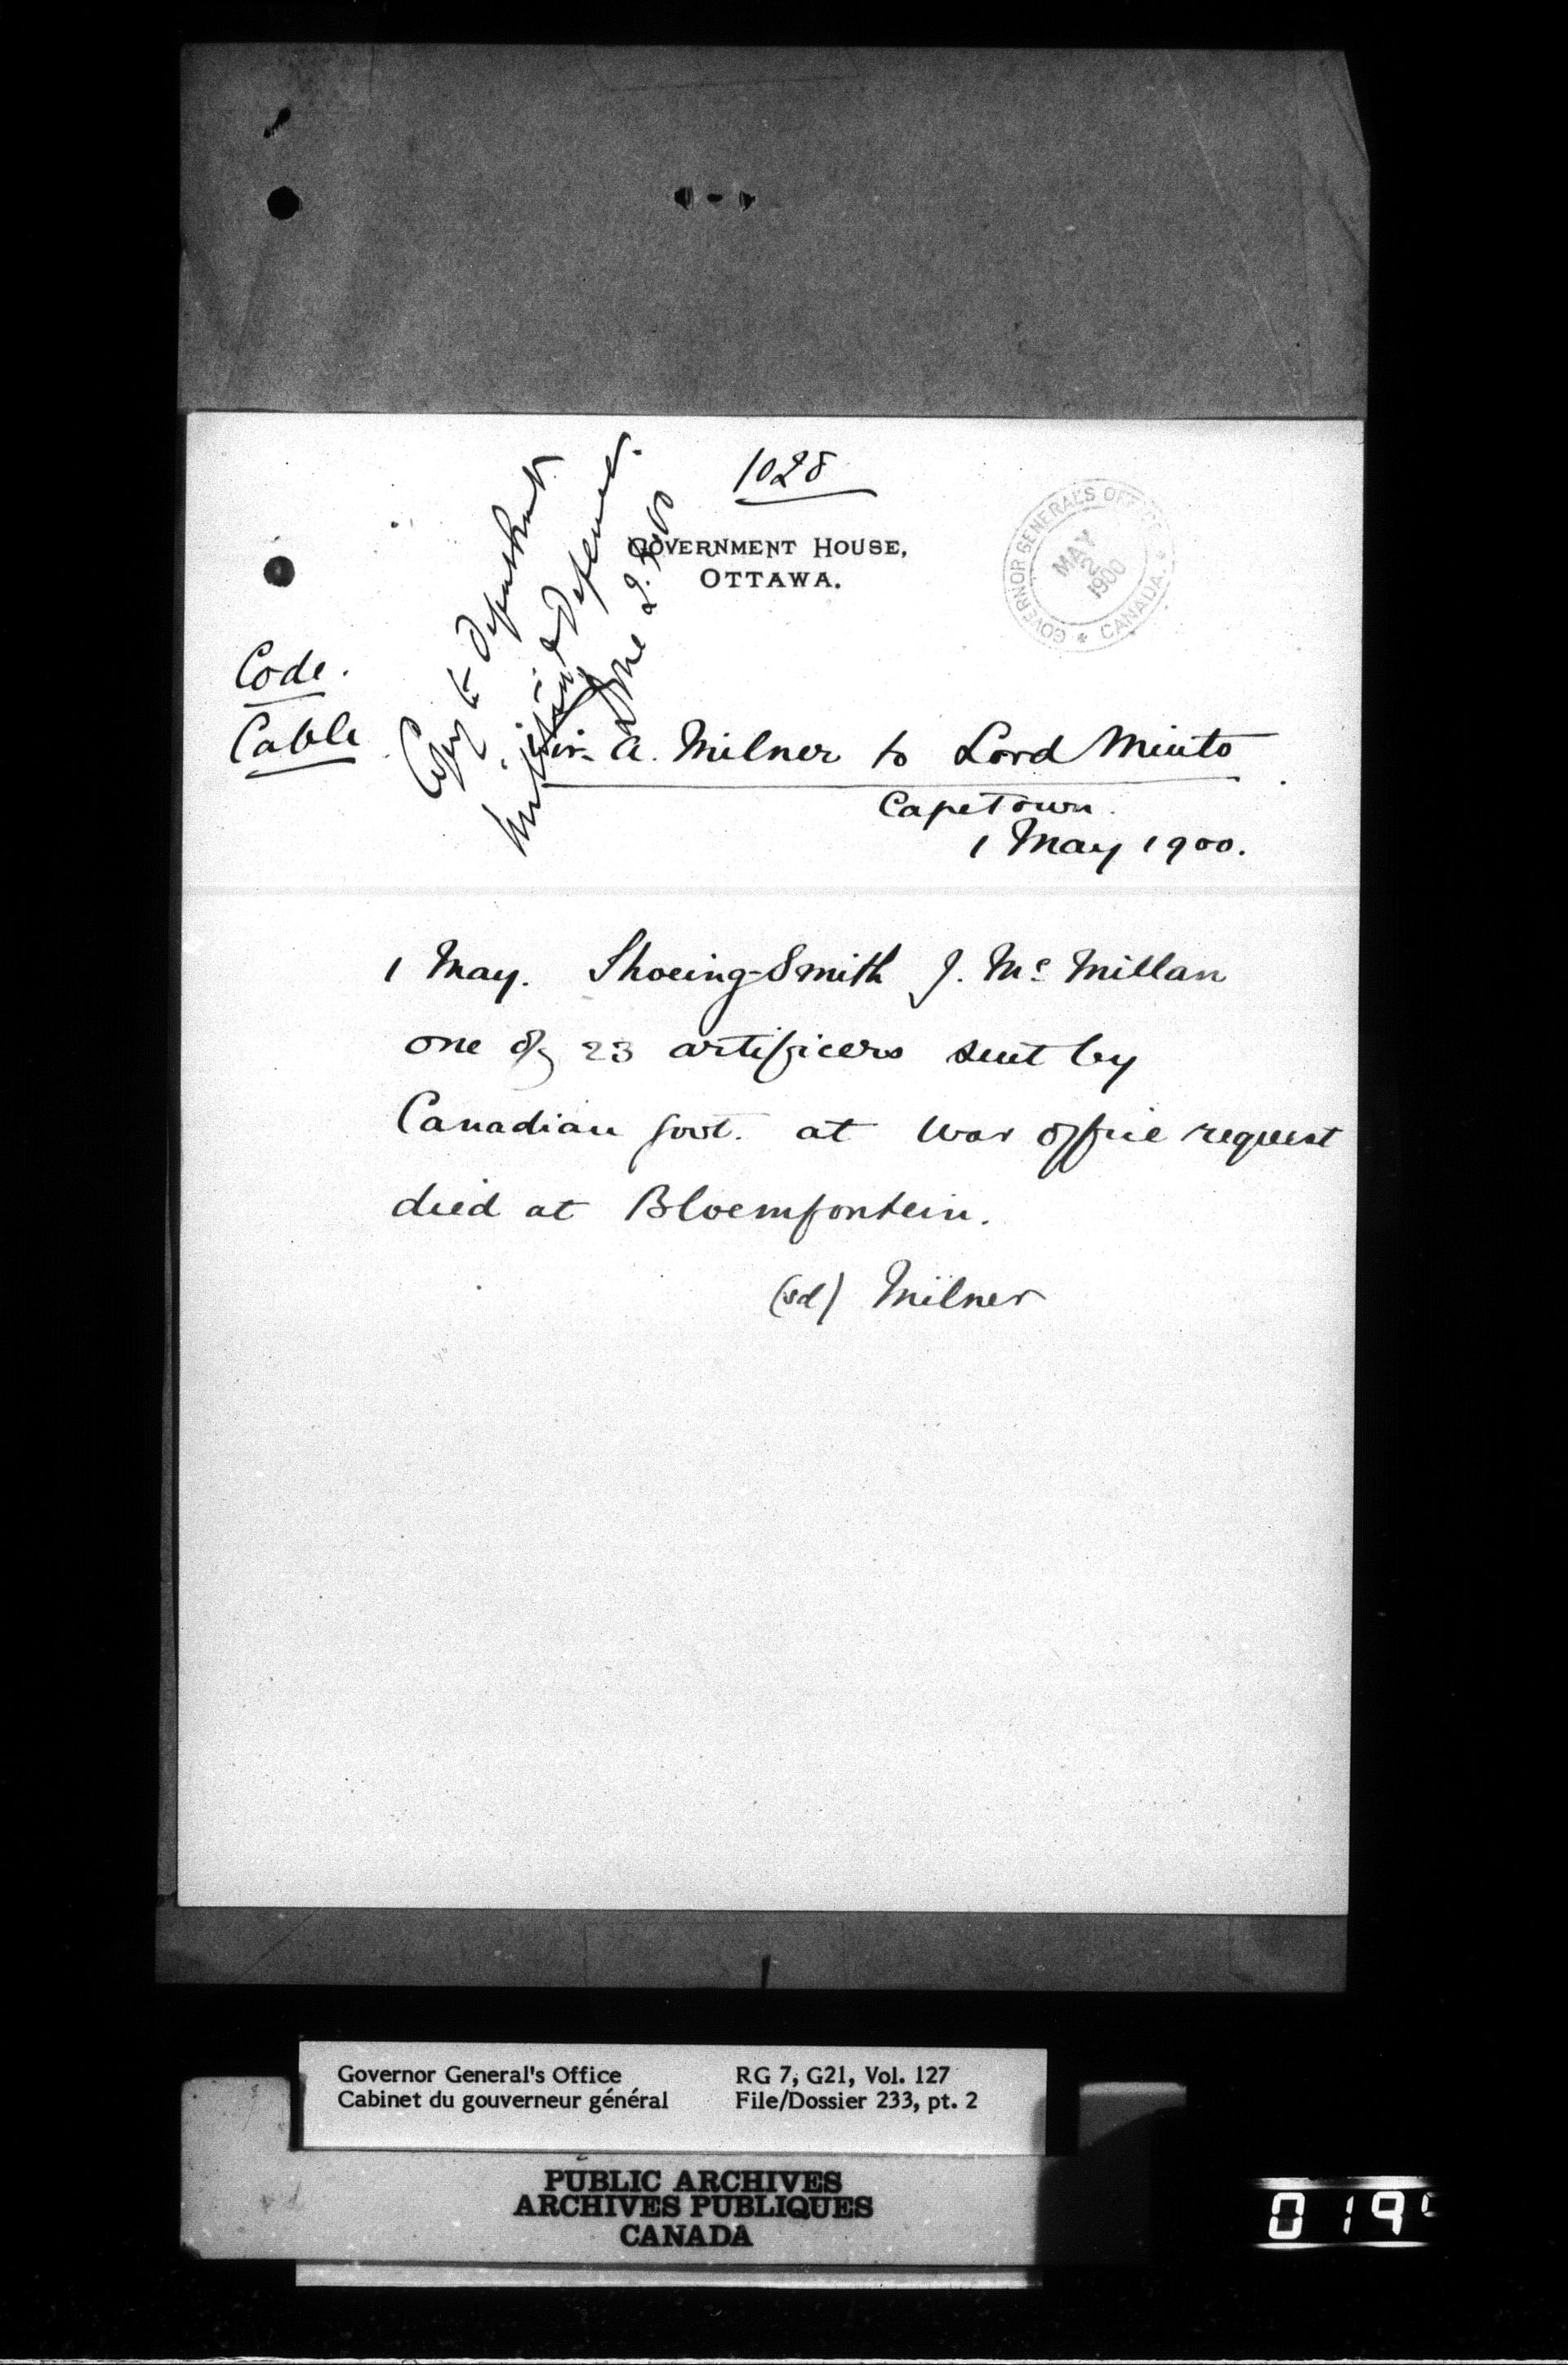 1028
GOVERNMENT HOUSE,
OTTAWA.
GOVERNOR GENERAL'S OFFICE * CANADA. *
MAY
2
1900
Copy to Department
Militia & Defence.
Code.
Cable
Sir A. Milner to Lord Minto
Capetown.
1 May 1900.
1 May. Shoeing-Smith J. Mc Millan
one of 23 artificers sent by
Canadian Govt. at War Office request
died at Bloemfontein.
(sd) Milner
Governor General's Office
Cabinet du gouverneur général
RG 7, G21, Vol. 127
File/Dossier 233, pt. 2
PUBLIC ARCHIVES
ARCHIVES PUBLIQUES
CANADA
019